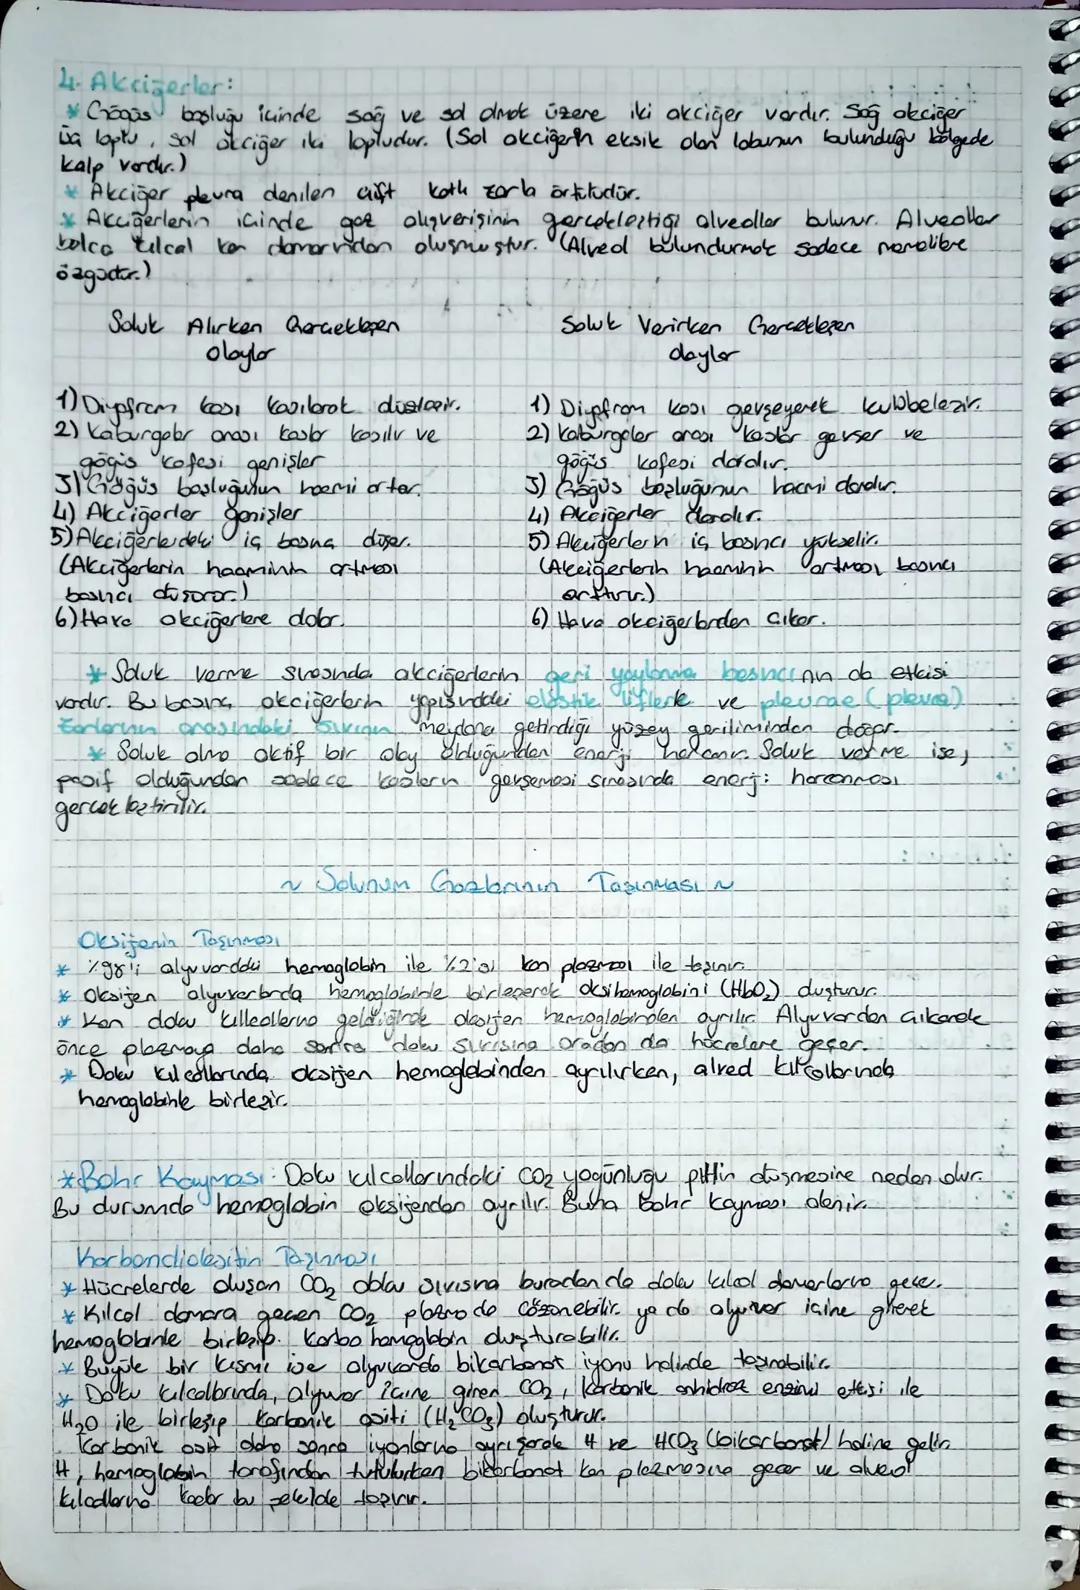 4. Akciğerler:
* Göğüs boşluğu içinde sağ ve sol olmak üzere iki akciğer vardır. Sağ akciğer
üç loplu, sol akciğer iki lopludur. (Sol akciğerin eksik olan lobunun bulunduğu bölgede
kalp vardır.)
* Akciğer pleura denilen çift katlı zarla örtülüdür.
* Akciğerlerin içinde gaz alışverişinin gerçekleştiği alveoller bulunur. Alveoller
bolca kılcal kan damarından oluşmuştur. (Alveol bulundurmak sadece memelilere
özgüdür.)
Soluk Alırken Gerçekleşen
Olaylar
1) Diyafram kası kasılarak düzleşir.
2) Kaburgalar arası kaslar kasılır ve
göğüs kafesi genişler
3) Göğüs boşluğunun hacmi artar.
4) Akciğerler genişler
5) Akciğerlerdeki iç basınç düşer.
(Akciğerlerin hacminin artması
basıncı düşürür.)
6) Hava akciğerlere dolar.
Soluk Verirken Gerçekleşen
olaylar
1) Diyafram kası gevşeyerek kubbeleşir.
2) Kaburgalar arası kaslar gevşer ve
göğüs kafesi daralır.
3) Göğüs boşluğunun hacmi daralır.
4) Akciğerler daralır.
5) Akciğerlerin iç basıncı yükselir.
(Akciğerlerin hacminin artması basıncı
arttırır.)
6) Hava akciğerlerden çıkar.
* Soluk verme sırasında akciğerlerin geri yaylanma basıncının da etkisi
vardır. Bu basınç, akciğerlerin yapısındaki elastik liflerle ve pleurae (plevra)
zarlarının arasındaki sıvının meydana getirdiği yüzey geriliminden doğar.
* Soluk alma aktif bir olay olduğundan enerji harcanır. Soluk verme ise,
pasif olduğundan sadece kasların gevşemesi sırasında enerji harcanması
gerçekleştirilir.
~ Solunum Gazlarının Taşınması ~
Oksijenin Taşınması
* %98'i alyuvardaki hemoglobin ile %2'si kan plazması ile taşınır.
* Oksijen alyuvarlarda hemoglobinle birleşerek oksihemoglobini (HbO₂) oluşturur.
* Kan doku kılcallarına geldiğinde oksijen hemoglobinden ayrılır. Alyuvardan çıkarak
önce plazmaya daha sonra doku sıvısına oradan da hücrelere geçer.
* Doku kılcallarında oksijen hemoglobinden ayrılırken, alveol kılcallarında
hemoglobinle birleşir.
* Bohr Kayması: Doku kılcallarındaki CO₂ yoğunluğu pH'ın düşmesine neden olur.
Bu durumda hemoglobin oksijenden ayrılır. Buna bohr kayması denir.
Karbondioksitin Taşınması
* Hücrelerde oluşan CO₂ doku sıvısına buradan da doku kılcal damarlarına geçer.
* Kılcal damara geçen CO₂ plazmada çözünebilir ya da alyuvar içine girerek
hemoglobinle birleşip karbo hemoglobin oluşturabilir.
* Büyük bir kısmı ise alyuvarda bikarbonat iyonu halinde taşınabilir.
* Doku kılcallarında, alyuvar içine giren CO₂, karbonik anhidraz enzimi etkisi ile
H₂O ile birleşip karbonik asiti (H₂CO₃) oluşturur.
Karbonik asit daha sonra iyonlarına ayrışarak H ve HCO₃ (bikarbonat) haline gelir.
H, hemoglobin tarafından tutulurken bikarbonat kan plazmasına geçer ve alveol
kılcallarına kadar bu şekilde taşınır.